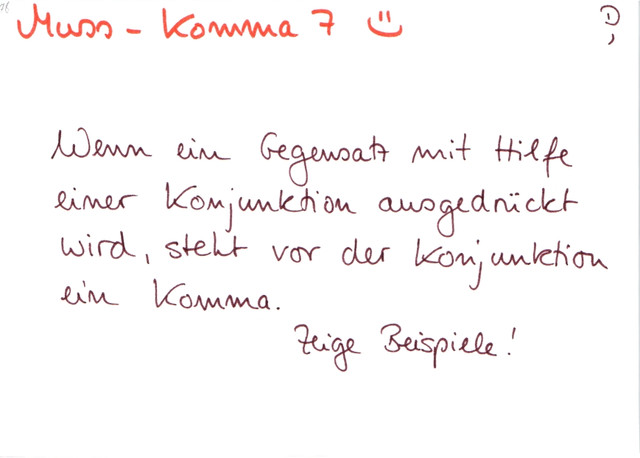 Muss - Komma 7
Wenn ein Gegensatz mit Hilfe
einer Konjunktion ausgedrückt
wird, steht vor der Konjunktion
ein Komma.
Zeige Beispiele!